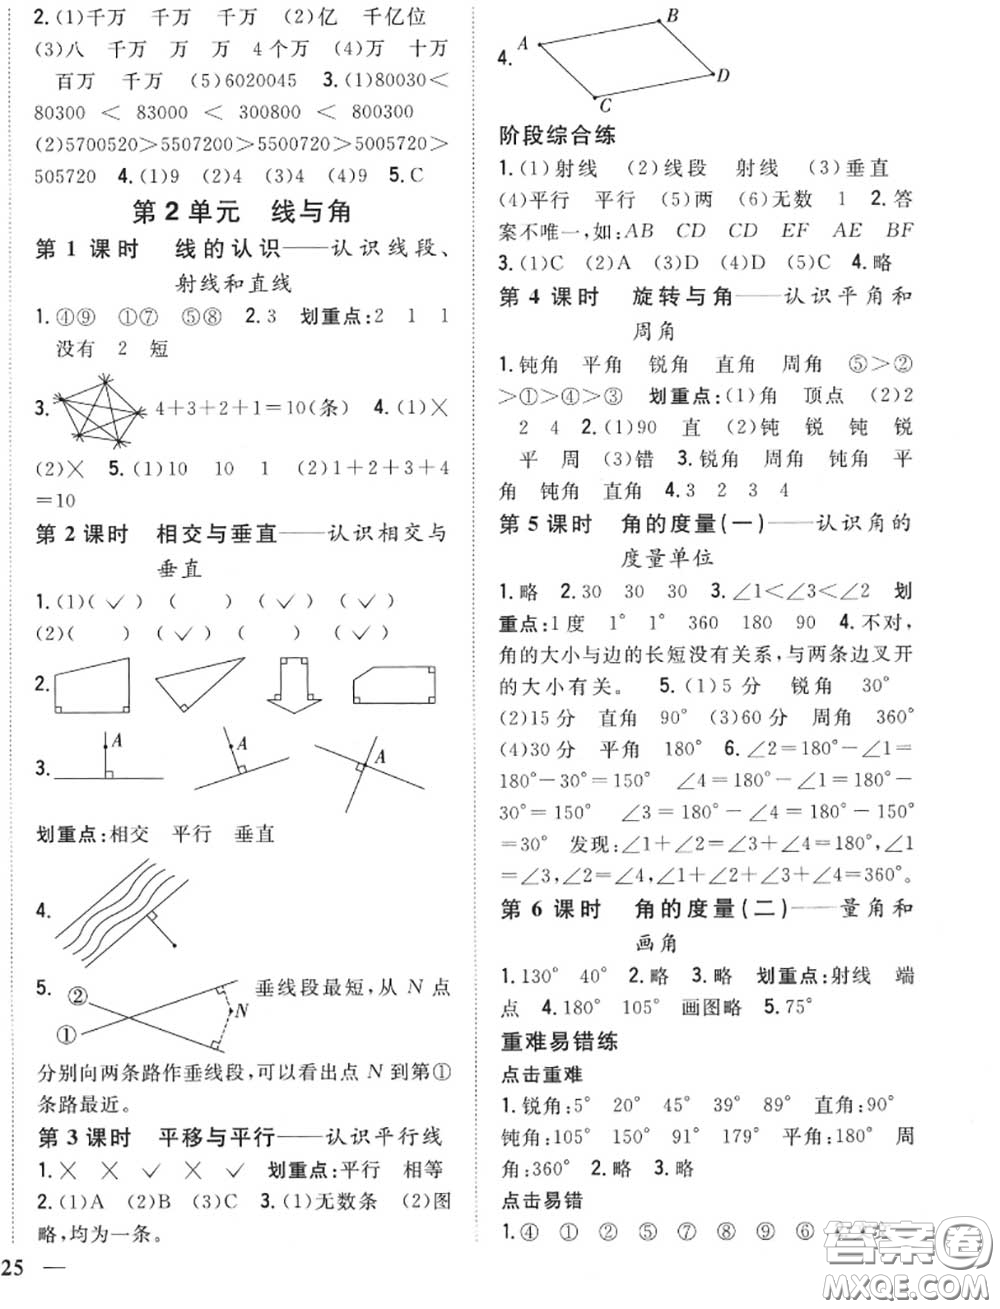 2.(1)千万 千万 千万 (2)亿 千亿位
(3)八 千万 万 万 4个万 (4)万 十万
百万 千万 (5)6020045 3.(1)80030<
80300 < 83000 < 300800 < 800300
(2)5700520>5507200>5500720>5005720>
505720 4.(1)9 (2)4 (3)4 (4)9 5.C
第2单元 线与角
第1课时 线的认识——认识线段、
射线和直线
1.④⑨ ①⑦ ⑤⑧ 2.3 划重点:2 1 1
没有 2 短
3. 4+3+2+1=10(条) 4.(1)×
(2)× 5.(1)10 10 1 (2)1+2+3+4
=10
第2课时 相交与垂直——认识相交与
垂直
1.(1)(✓) ( ) (✓) (✓)
(2)( ) (✓) ( ) (✓)
2.
3. A A A
划重点:相交 平行 垂直
4.
5. ② ① N 垂线段最短,从N点
分别向两条路作垂线段,可以看出点N到第①
条路最近。
第3课时 平移与平行——认识平行线
1.× × ✓ × ✓ 划重点:平行 相等
2.(1)A (2)B (3)C 3.(1)无数条 (2)图
略,均为一条。
25
4. A B C D
阶段综合练
1.(1)射线 (2)线段 射线 (3)垂直
(4)平行 平行 (5)两 (6)无数 1 2.答
案不唯一,如:AB CD CD EF AE BF
3.(1)C (2)A (3)D (4)D (5)C 4.略
第4课时 旋转与角——认识平角和
周角
1.钝角 平角 锐角 直角 周角 ⑤>②
>①>④>③ 划重点:(1)角 顶点 (2)2
2 4 2.(1)90 直 (2)钝 锐 钝 锐
平 周 (3)错 3.锐角 周角 钝角 平
角 钝角 直角 4.3 2 3 4
第5课时 角的度量(一)——认识角的
度量单位
1.略 2.30 30 30 3.∠1<∠3<∠2 划
重点:1度 1° 1° 360 180 90 4.不对,
角的大小与边的长短没有关系,与两条边叉开
的大小有关。 5.(1)5分 锐角 30°
(2)15分 直角 90° (3)60分 周角 360°
(4)30分 平角 180° 6.∠2=180°-∠1=
180°-30°=150° ∠4=180°-∠1=180°-
30°=150° ∠3=180°-∠4=180°-150°
=30° 发现:∠1+∠2=∠3+∠4=180°,∠1
=∠3,∠2=∠4,∠1+∠2+∠3+∠4=360°。
第6课时 角的度量(二)——量角和
画角
1.130° 40° 2.略 3.略 划重点:射线 端
点 4.180° 105° 画图略 5.75°
重难易错练
点击重难
1.锐角:5° 20° 45° 39° 89° 直角:90°
钝角:105° 150° 91° 179° 平角:180° 周
角:360° 2.略 3.略
点击易错
1.④ ① ② ⑤ ⑦ ⑧ ⑨ ⑥
答案圈
MXQE.COM